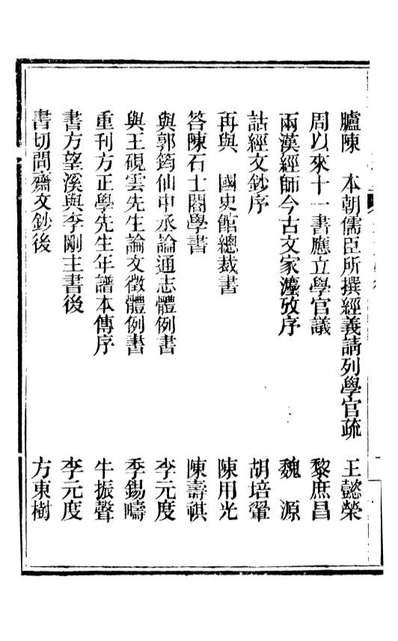 臚陳　本朝儒臣所撰經義請列學官疏　王懿榮
周以來十一書應立學官議　黎庶昌
兩漢經師今古文家灋攷序　魏　源
詁經文鈔序　胡培翬
再與　國史館總裁書　陳用光
答陳石士閣學書　陳壽祺
與郭筠仙中丞論通志體例書　李元度
與王硯雲先生論文徵體例書　季錫疇
重刊方正學先生年譜本傳序　牛振聲
書方望溪與李剛主書後　李元度
書切問齋文鈔後　方東樹